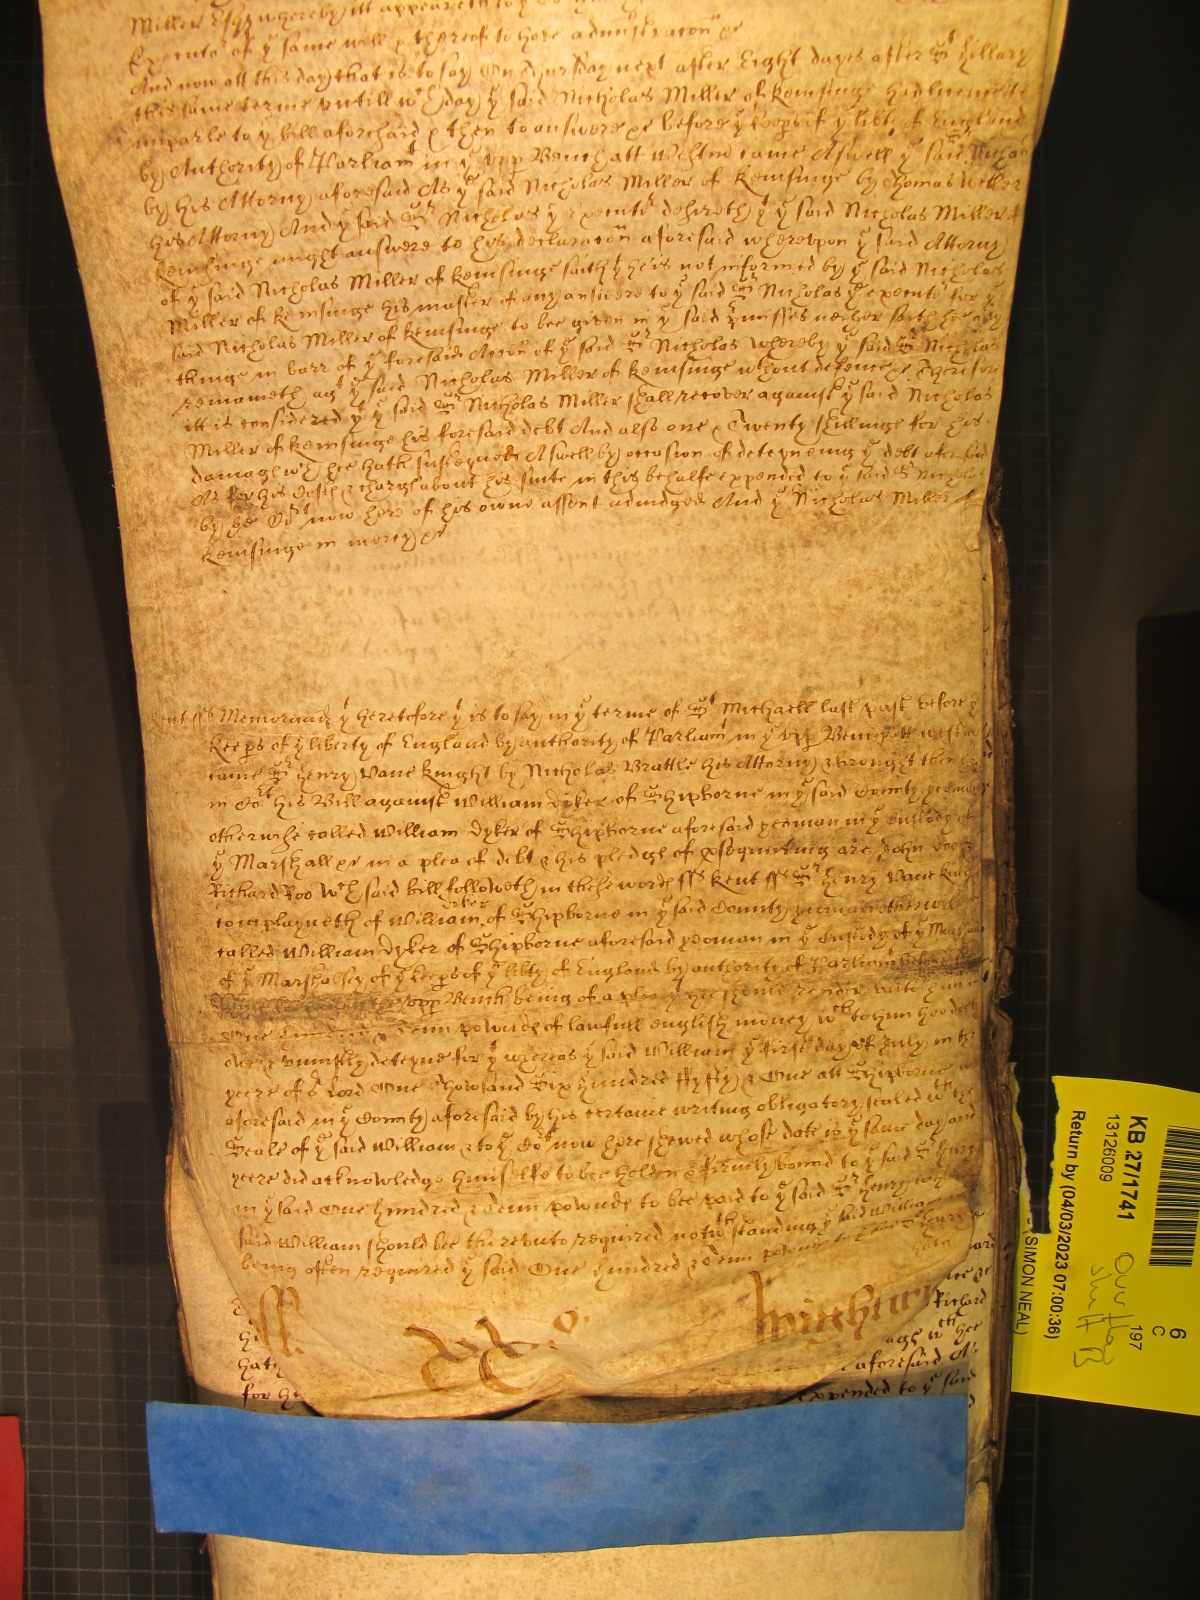 Miller Esqr whereby itt appeareth to yᵉ
Executoʳ of yᵉ same will & thereof to have administracon &c
And now att this day that is to say On Thursday next after Eight dayes after Sᵗ Hillary
this same terme untill wᶜʰ day yᵉ said Nicholas Miller of Kemsinge had licence to
imparle to yᵉ bill aforesaid & then to answere &c before yᵉ Keepʳˢ of yᵉ libtie of England
by Authority of Parliamᵗ in yᵉ upp Bench att Westmʳ came Aswell yᵉ said Nicholas
by his Attorny aforesaid As yᵉ said Nicholas Miller of Kemsinge by Thomas Weller
his Attorny And yᵉ said Sʳ Nicholas yᵉ executoʳ desireth yᵗ yᵉ said Nicholas Miller of
Kemsinge might answere to his declaracon aforesaid whereupon yᵉ said Attorny
of yᵉ said Nicholas Miller of Kemsinge saith yᵗ he is not informed by yᵉ said Nicholas
Miller of Kemsinge his master of any answere to yᵉ said Sʳ Nicholas yᵉ executoʳ for yᵉ
said Nicholas Miller of Kemsinge to bee given in yᵉ said pmisses neither saith he any
thinge in barr of yᵉ foresaid Accon of yᵉ said Sʳ Nicholas whereby yᵉ said Sʳ Nicholas
remaineth agᵗ yᵉ said Nicholas Miller of Kemsinge wᵗʰout defence &c Therefore
itt is considered yᵗ yᵉ said Sʳ Nicholas Miller shall recover against yᵉ said Nicholas
Miller of Kemsinge his foresaid debt And also one & Twenty shillinge for his
damage wᶜʰ hee hath susteyned Aswell by occasion of deteyneing yᵉ debt aforesaid
As for his Costs & charge about his suite in this behalfe expended to yᵉ said Sʳ Nicholas
by yᵉ Coʳᵗ now here of his owne assent adiudged And yᵉ Nicholas Miller of
Kemsinge in mercy &c
Kent ss Memorand yᵗ heretofore yᵗ is to say in yᵉ terme of Sᵗ Michaell last past before yᵉ
Keepʳˢ of yᵉ liberty of England by authority of Parliamᵗ in yᵉ upp Bench att Westmʳ
came Sʳ Henry Vane Knight by Nicholas Brattle his Attorny & brought then
in Coʳᵗ his Bill against William Dyker of Shipborne in yᵉ said County yeoman
otherwise called William Dyker of Shipborne aforesaid yeoman in yᵉ custody of
yᵉ Marshall &c in a plea of debt & his pledge of psequuting are John Doe &
Richard Roo wᶜʰ said bill followeth in these words ss Kent ss Sʳ Henry Vane Knight
complayneth of William Dyker of Shipborne in yᵉ said County yeoman otherwise
called William Dyker of Shipborne aforesaid yeoman in yᵉ Custody of yᵉ Marshall
of yᵉ Marshalsey of yᵉ keepʳˢ of yᵉ libty of England by authority of Parliamᵗ before
upp Bench being of a plea yᵗ hee render unto him
One hundred & Tenn pownde of lawfull english money wᶜʰ to him hee doth
owe & uniustly deteyne for yᵗ whereas yᵉ said William yᵉ first day of July in the
yeere of oʳ Lord One Thowsand Six hundred ffyfty & One att Shipborne
aforesaid in yᵉ County aforesaid by his certaine writing obligatory sealed wᵗʰ the
Seale of yᵉ said William & to yᵉ Coʳᵗ now here shewed whose date is yᵉ same day and
yeere did acknowledge himselfe to bee holden & firmely bound to yᵉ said Sʳ Henry
in yᵉ said One hundred & Tenn pownde to bee paid to yᵉ said Sʳ Henry when
said William should bee thereunto required notwᵗʰstanding yᵉ said William
being often required yᵉ said One hundred & Tenn pownde
Richard
wᶜʰ hee
hath aforesaid As
for his expended to yᵉ said
KB 27/1741
13126009
Return by (04/03/2023 07:00:36)
(SIMON NEAL)
197
C
6